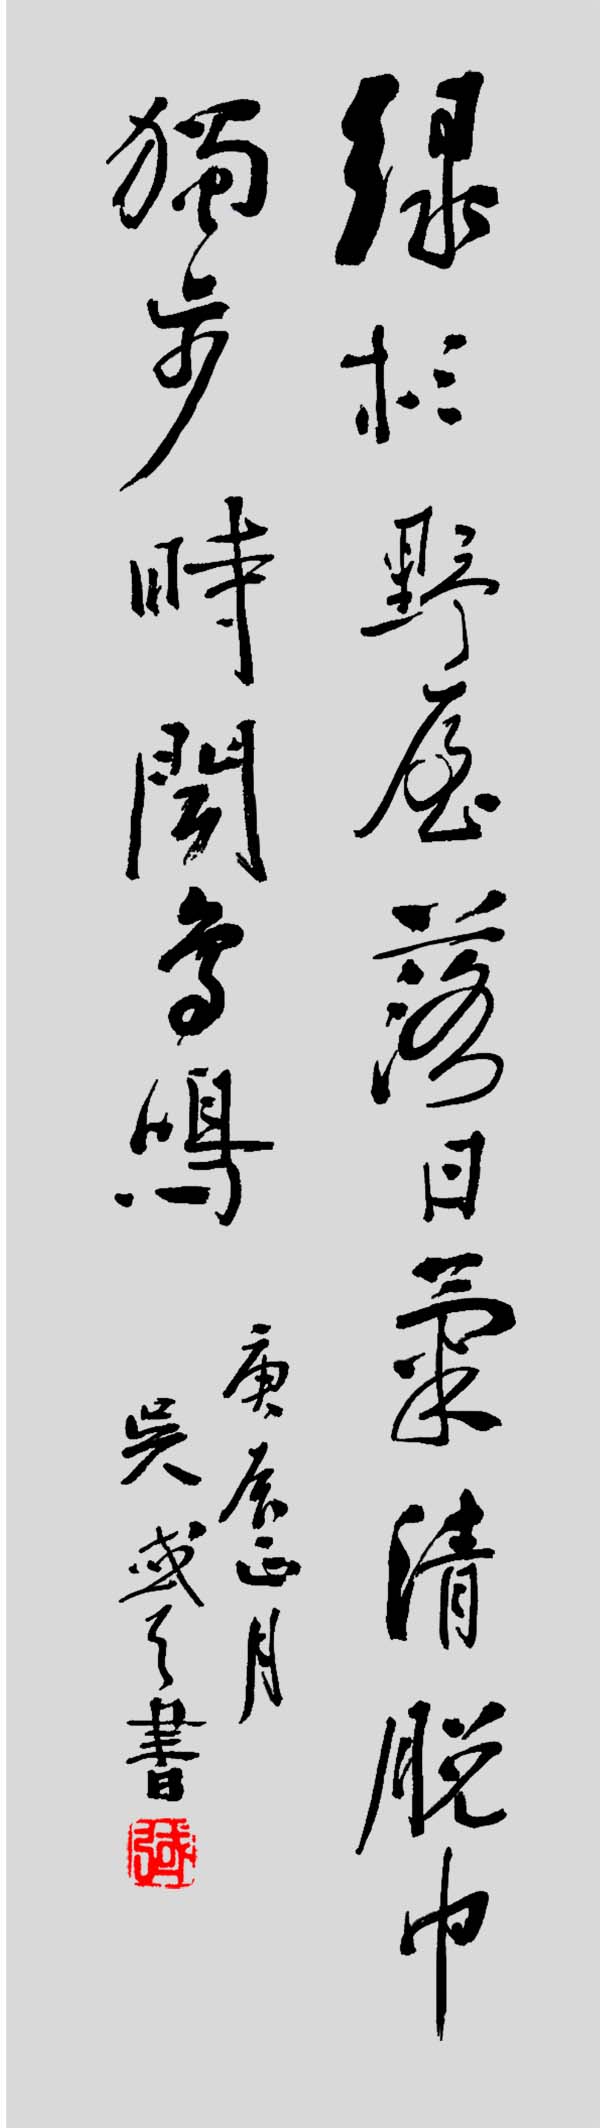 綠杉野屋落日氣清脫巾
獨步時聞鳥鳴
庚辰正月
吳書